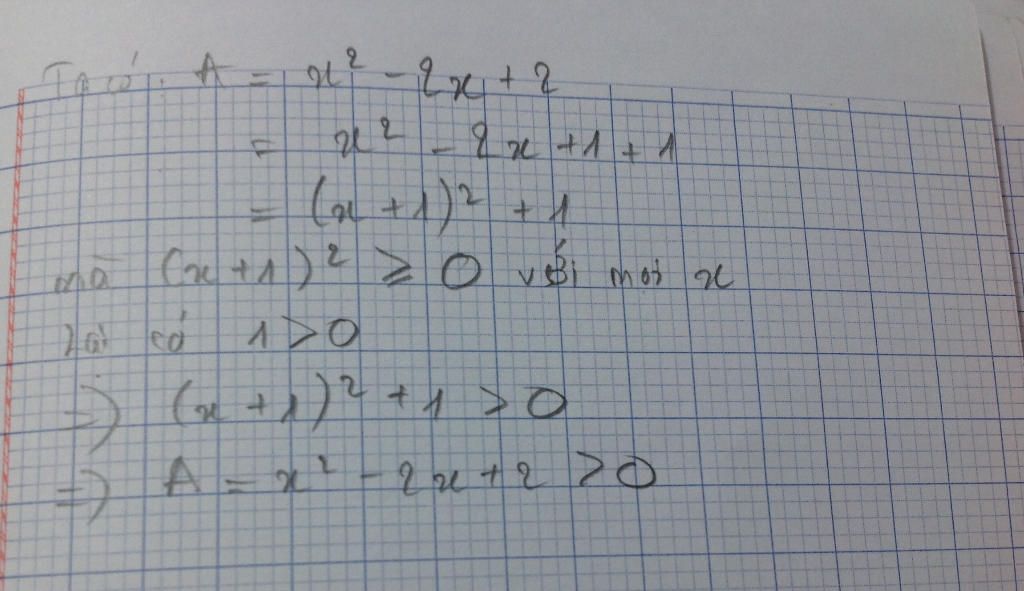 Ta có: A = x² - 2x + 2
= x² - 2x + 1 + 1
= (x + 1)² + 1
mà (x + 1)² ≥ 0 với mọi x
lại có 1 > 0
=> (x + 1)² + 1 > 0
=> A = x² - 2x + 2 > 0